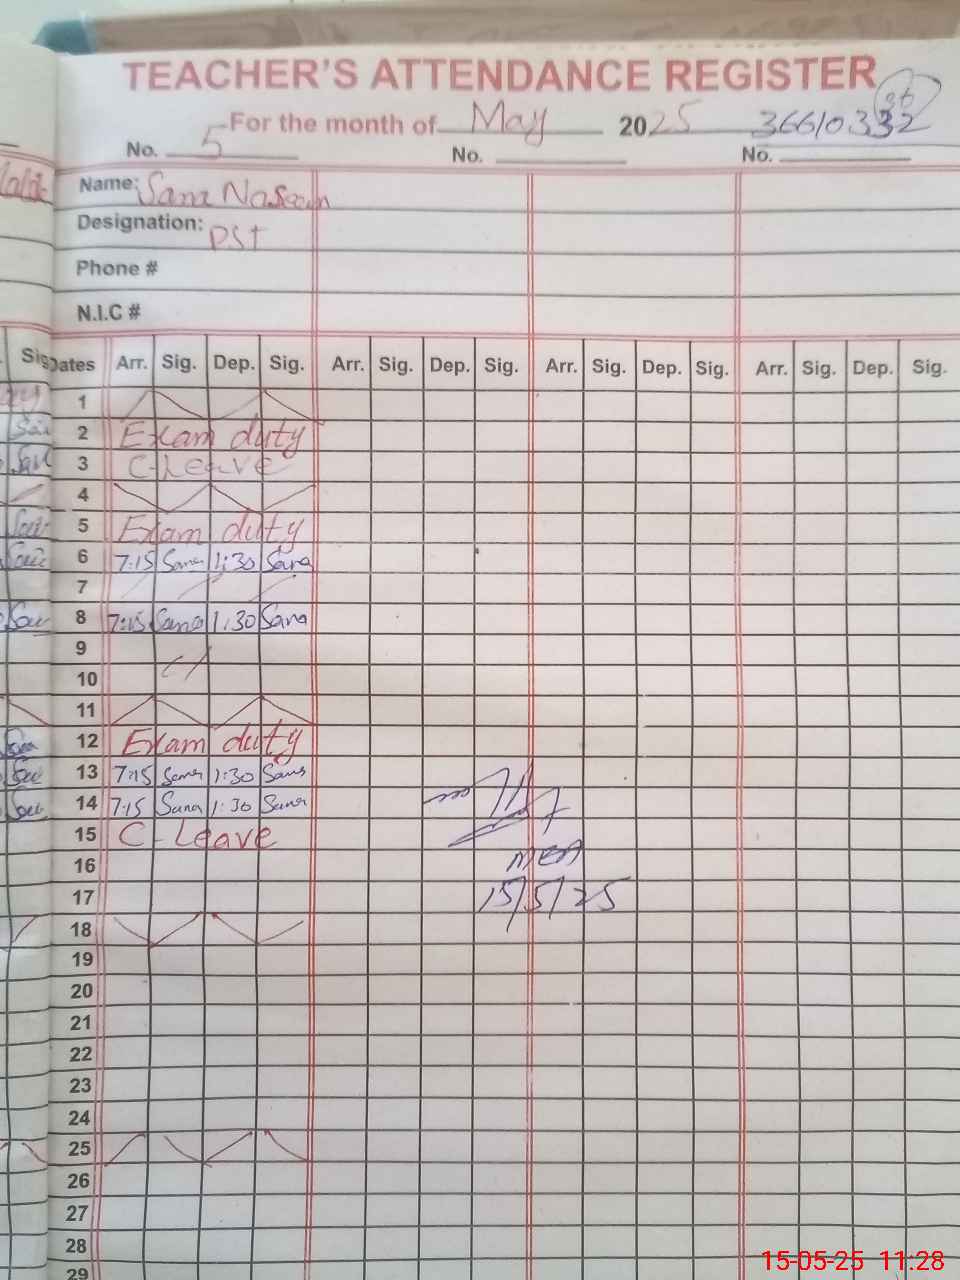 TEACHER'S ATTENDANCE REGISTER
For the month of May 2025 36610332
36
No. 5 No. No.
Name: Sana Naseem
Designation: PST
Phone #
N.I.C #
Dates Arr. Sig. Dep. Sig. Arr. Sig. Dep. Sig. Arr. Sig. Dep. Sig. Arr. Sig. Dep. Sig.
1
2 Exam duty
3 C-Leave
4
5 Exam duty
6 7:15 Sana 1:30 Sana
7
8 7:15 Sana 1:30 Sana
9
10
11
12 Exam duty
13 7:15 Sana 1:30 Sana
14 7:15 Sana 1:30 Sana
15 C-Leave
16 MEA
17 15/5/25
18
19
20
21
22
23
24
25
26
27
28
29
15-05-25 11:28